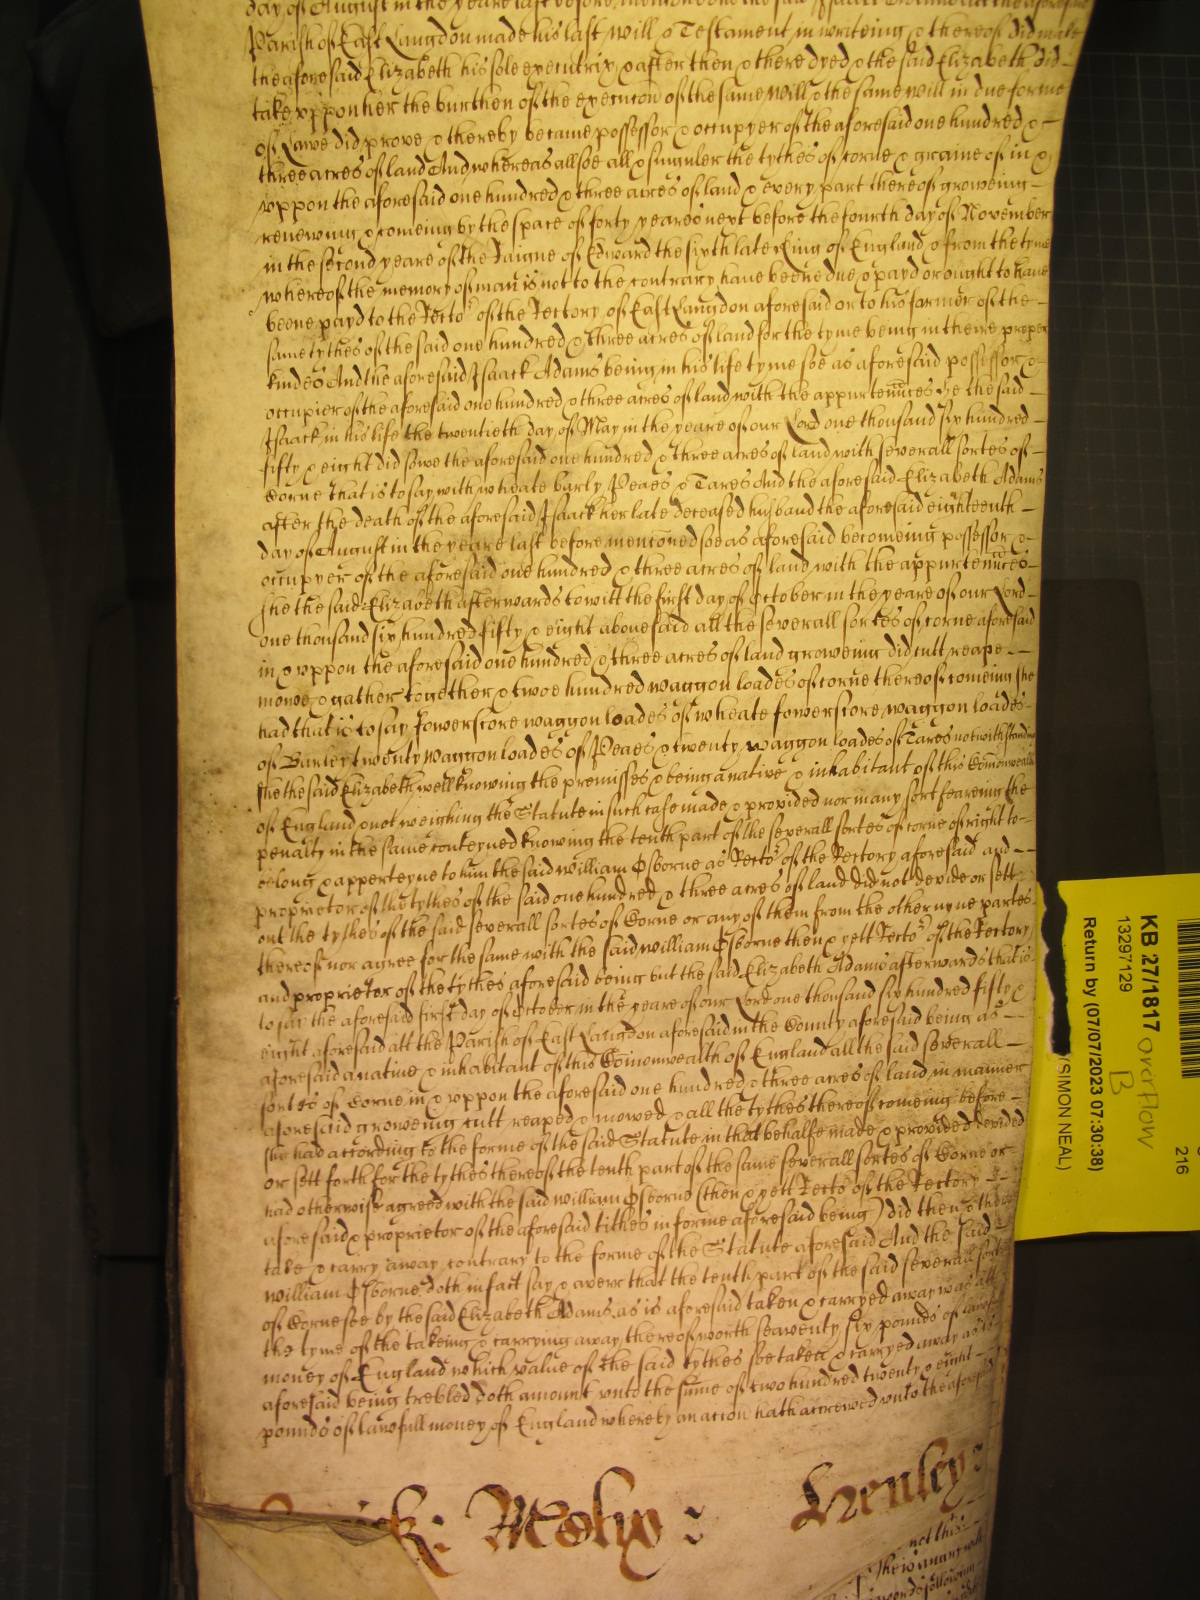 day of August in the yeare last before
Parish of East Langdon made his last will & Testament in writeing & thereof did make
the aforesaid Elizabeth his sole executrix & after then & there dyed & the said Elizabeth did
take vppon her the burthen of the execucon of the same will & the same will in due forme
of Lawe did prove & thereby became possessor & occupyer of the aforesaid one hundred &
three acres of land And whereas allsoe all & singuler the tythes of corne & graine of in &
vppon the aforesaid one hundred & three acres of land & every part thereof groweing
renewing & comeing by the space of forty yeares next before the fourth day of November
in the second yeare of the Raigne of Edward the sixth late King of England & from the tyme
whereof the memory of man is not to the contrary have beene due & payd or ought to have
beene payd to the Rector of the Rectory of East Langdon aforesaid or to his farmer of the
same tythes of the said one hundred & three acres of land for the tyme being in theire proper
kindes And the aforesaid Isaack Adams being in his life tyme soe as aforesaid possessor &
occupier of the aforesaid one hundred & three acres of land with the appurtennces he the said
Isaack in his life the twentieth day of May in the yeare of our Lord one thousand six hundred
fifty & eight did sowe the aforesaid one hundred & three acres of land with severall sortes of
Corne that is to say with wheate barly Peaes & Tares And the aforesaid Elizabeth Adams
after the death of the aforesaid Isaack her late deceased husband the aforesaid eighteenth
day of August in the yeare last before menconed soe as aforesaid becomeing possessor &
occupyer of the aforesaid one hundred & three acres of land with the appurtennces
she the said Elizabeth afterwards to witt the first day of October in the yeare of our Lord
one thousand six hundred fifty & eight abovesaid all the severall sortes of corne aforesaid
in & vppon the aforesaid one hundred & three acres of land groweing did cutt reape
mowe & gather together & twoe hundred waggon loades of corne thereof comeing she
had that is to say fowerscore waggon loades of wheate fowerscore waggon loades
of Barley twenty waggon loades of Peaes & twenty waggon loades of Tares notwithstanding
she the said Elizabeth well knowing the premisses & being a native & inhabitant of this Comonwealth
of England & not weighing the Statute in such case made & provided nor in any sort feareing the
penalty in the same conteyned knowing the tenth part of the severall sortes of corne of right to
belong & apperteyne to him the said William Osborne as Rector of the Rectory aforesaid and
proprietor of the tythes of the said one hundred & three acres of land did not devide or sett
out the tythes of the said severall sortes of Corne or any of them from the other nyne partes
thereof nor agree for the same with the said William Osborne then & yett Rector of the Rectory
and proprietor of the tythes aforesaid being but the said Elizabeth Adams afterwards that is
to say the aforesaid first day of October in the yeare of our Lord one thousand six hundred fifty &
eight aforesaid att the Parish of East Langdon aforesaid in the County aforesaid being as
aforesaid a native & inhabitant of this Comonwealth of England all the said severall
sortes of Corne in & vppon the aforesaid one hundred & three acres of land in manner
aforesaid groweing cutt reaped & mowed & all the tythes thereof comeing before
she had according to the forme of the said Statute in that behalfe made & provided devided
or sett forth for the tythes thereof the tenth part of the same severall sortes of Corne or
had otherwise agreed with the said William Osborne (then & yett Rector of the Rectory
aforesaid & proprietor of the aforesaid tithes in forme aforesaid being) did then & there
take & carry away contrary to the forme of the Statute aforesaid And the said
William Osborne doth in fact say & averr that the tenth part of the said severall sortes
of Corne soe by the said Elizabeth Adams as is aforesaid taken & carryed away was att
the tyme of the takeing & carrying away thereof worth seaventy six pounds of lawfull
money of England which value of the said tythes soe taken & carryed away as is
aforesaid being trebled doth amount vnto the summe of two hundred twenty & eight
pounds of lawfull money of England whereby an accon hath accrewed vnto the aforesaid
Henley
not this
KB 27/1817 overflow
13297129
B
216
Return by (07/07/2023 07:30:38)
(SIMON NEAL)